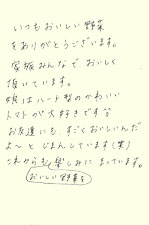 いつもおいしい野菜
をありがとうございます。
家族みんなで、おいしく
頂いています。
娘はハート型のかわいい
トマトが大好きです♡
お友達にも、すごくおいしいんだ
よ〜とじまんしています(笑)
これからも楽しみにまっています。
おいしい野菜を